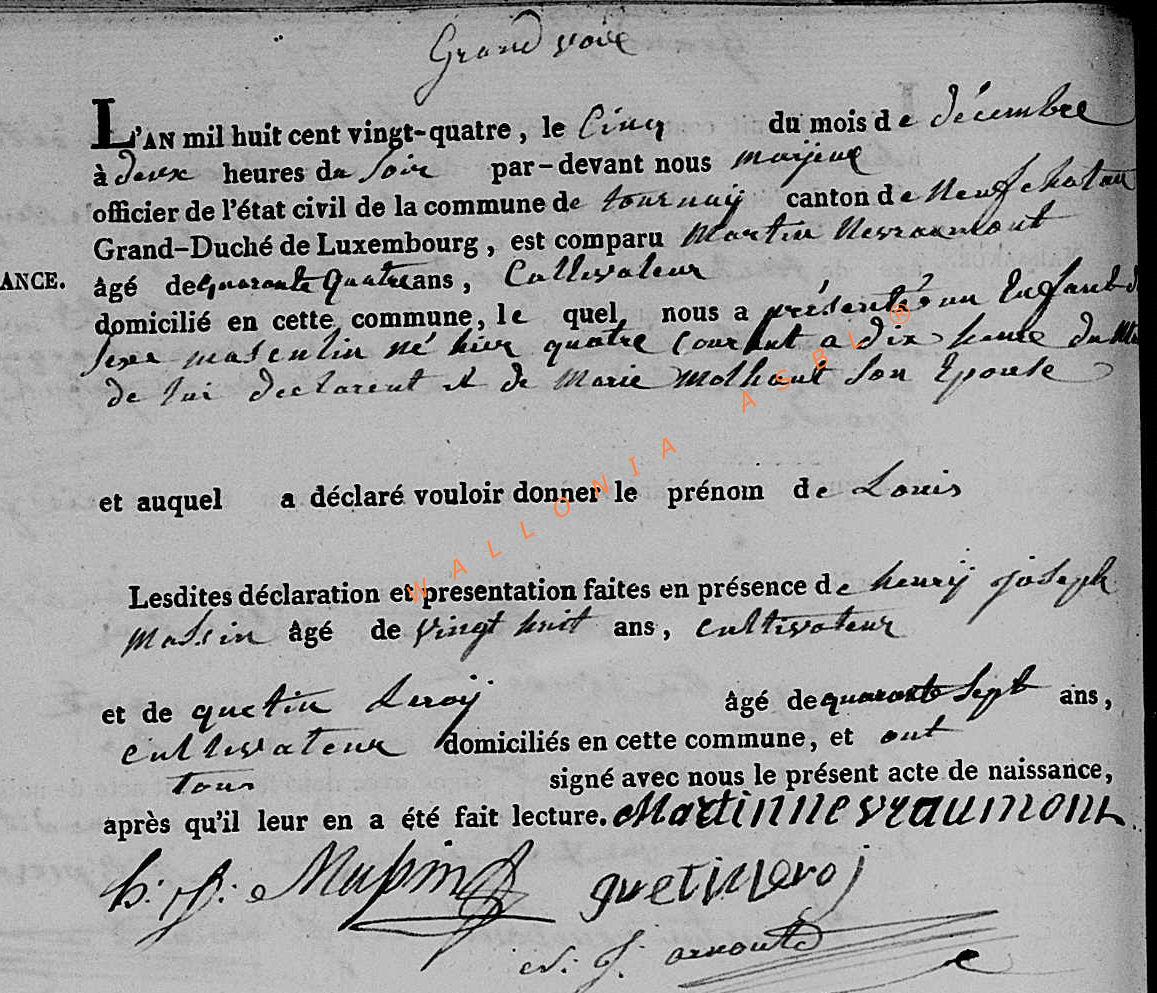 Grand voie
L'AN mil huit cent vingt-quatre, le Cinq du mois de décembre
à deux heures du soir par-devant nous
officier de l'état civil de la commune de tournaÿ canton de Neufchatau
Grand-Duché de Luxembourg, est comparu Martin Nevraumont
ANCE. âgé de quarante quatre ans, Cultivateur
domicilié en cette commune, le quel, nous a présenté un Enfant d
sexe masculin né hier quatre Courant a dix heure du
de lui declarent et de Marie molhant son Epouse
et auquel a déclaré vouloir donner le prénom de Louis
Lesdites déclaration et presentation faites en présence de henrÿ joseph
massin âgé de vingt huit ans, cultivateur
et de quetin Leroÿ âgé de quarante sept ans,
cultivateur domiciliés en cette commune, et ont
tous signé avec nous le présent acte de naissance,
après qu'il leur en a été fait lecture. Martin nevraumont
h: j: Massin quetin leroj
j. arnould
WALLONIA ASBL ®